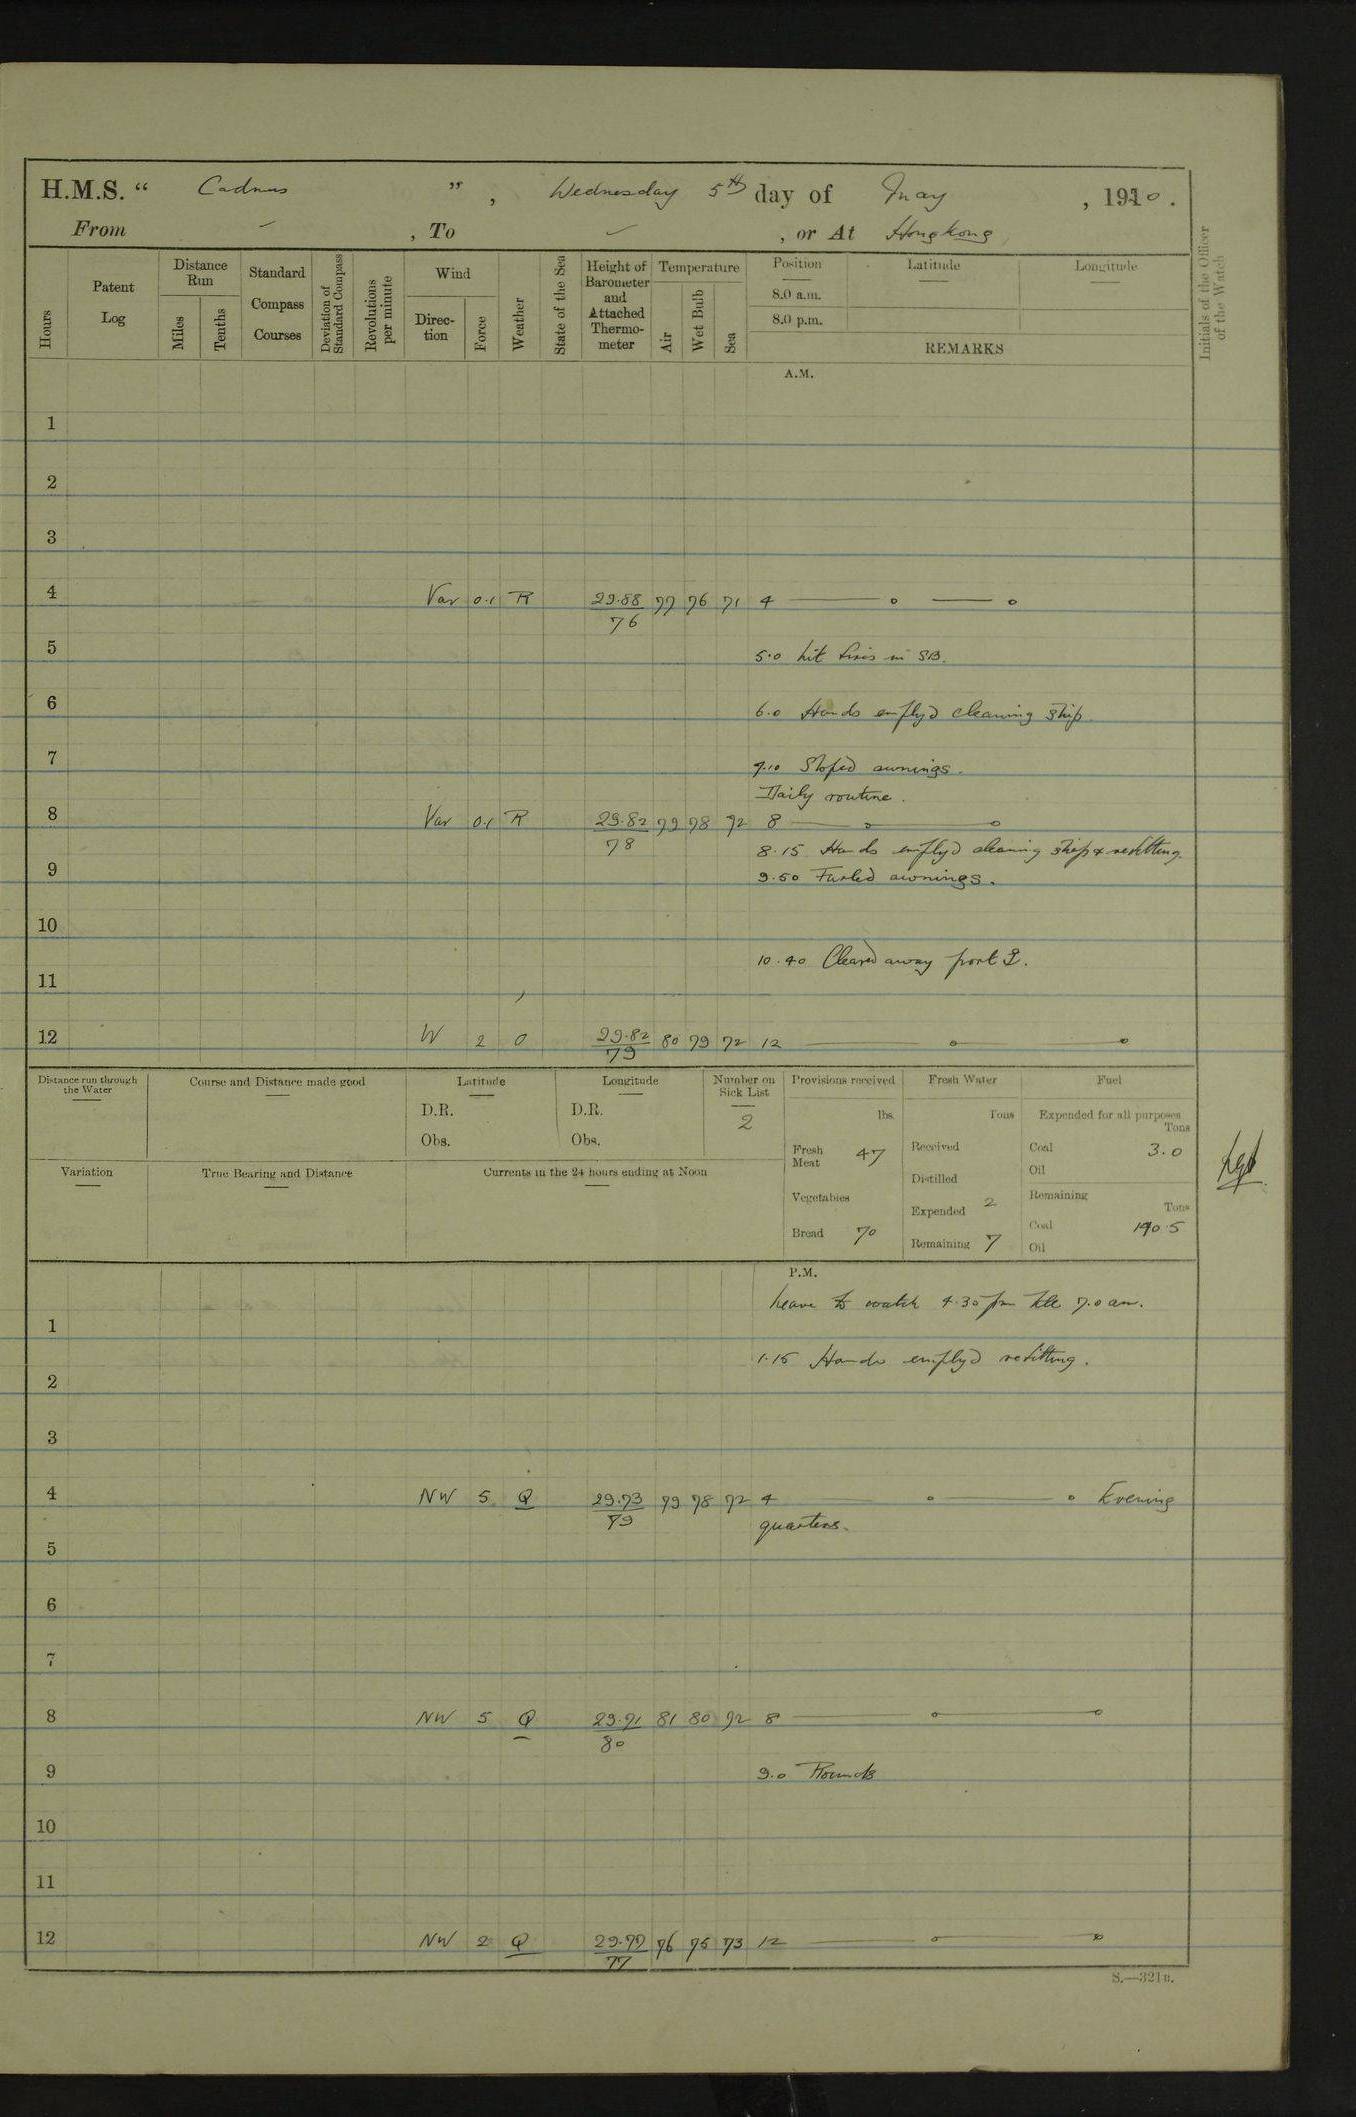 H.M.S. “ Cadmus ”, Wednesday 5th day of May, 1920.
From - , To - , or At Hongkong
Hours
Patent Log
Distance Run
Miles
Tenths
Standard Compass Courses
Deviation of Standard Compass
Revolutions per minute
Wind
Direction
Force
Weather
State of the Sea
Height of Barometer and Attached Thermometer
Temperature
Air
Wet Bulb
Sea
Position
8.0 a.m.
8.0 p.m.
Latitude
Longitude
REMARKS
Initials of the Officer of the Watch
A.M.
1
2
3
4 Var 0.1 R 29.88 77 76 71 4
76
5
5.0 Lit fires in SB.
6
6.0 Hands emply'd cleaning ship
7
7.10 Sloped awnings.
Daily routine.
8 Var 0.1 R 29.82 79 78 72 8
78
8.15 Hands emply'd cleaning ship & refitting.
9
9.50 Furled awnings.
10
10.40 Cleared away port
11
12 W 2 O 29.82 80 79 72 12
79
Distance run through the Water
Course and Distance made good
Latitude
D.R.
Obs.
Longitude
D.R.
Obs.
Number on Sick List
2
Provisions received
lbs.
Fresh Meat 47
Vegetables
Bread 70
Fresh Water
Tons
Received
Distilled
Expended 2
Remaining 7
Fuel
Expended for all purposes
Tons
Coal 3.0
Oil
Remaining
Tons
Coal 190.5
Oil
Variation
True Bearing and Distance
Currents in the 24 hours ending at Noon
P.M.
Leave to watch 4.30 pm till 7.0 am.
1
1.15 Hands emply'd refitting.
2
3
4 NW 5 Q 29.73 79 78 72 4 Evening
79
quarters.
5
6
7
8 NW 5 Q 29.71 81 80 72 8
80
9
9.0 Rounds
10
11
12 NW 2 Q 29.77 76 75 73 12
77
S.—321B.